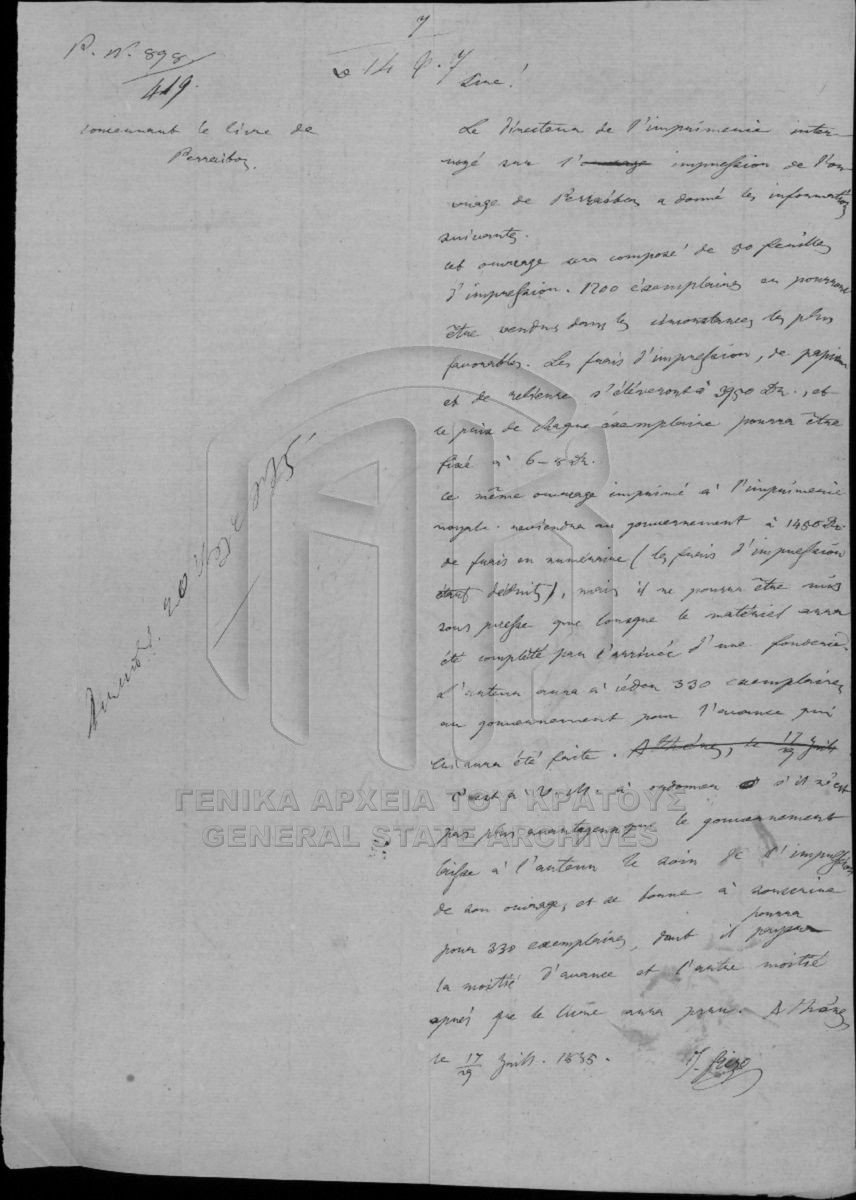 7
P. N. 898
419.
14
Sire!
concernant le livre de
Perraibos.
Le Directeur de l'imprimerie inter-
rogé sur l'ouvrage impression de l'ou-
vrage de Perraibos a donné les informations
suivantes.
cet ouvrage sera composé de 30 feuilles
d'impression. 1200 éxemplaires en pourront
être vendus dans les circonstances les plus
favorables. Les frais d'impression, de papier
et de relieure s'éléveront à 3950 Dr., et
le prix de chaque éxemplaire pourra être
fixé à 6-8 Dr.
ce même ouvrage imprimé à l'imprimerie
royale reviendra au gouvernement à 1450 Dr.
de frais en numéraire (les frais d'impression
étant déduits), mais il ne pourra être mis
sous presse que lorsque le matériel aura
été complété par l'arrivée d'une fonderie.
L'auteur aura à céder 330 exemplaires
au gouvernement pour l'avance qui
lui aura été faite. Athénes, le 17/29 Juill.
C'est à V. M. à ordonner s'il n'est
pas plus avantageux que le gouvernement
laisse à l'auteur le soin de l'impression
de son ouvrage, et se borne à souscrire
pour 330 exemplaires, dont il pourra payer
la moitié d'avance et l'autre moitié
après que le livre aura paru. Athénes
le 17/29 Juill. 1835.
ΓΕΝΙΚΑ ΑΡΧΕΙΑ ΤΟΥ ΚΡΑΤΟΥΣ
GENERAL STATE ARCHIVES